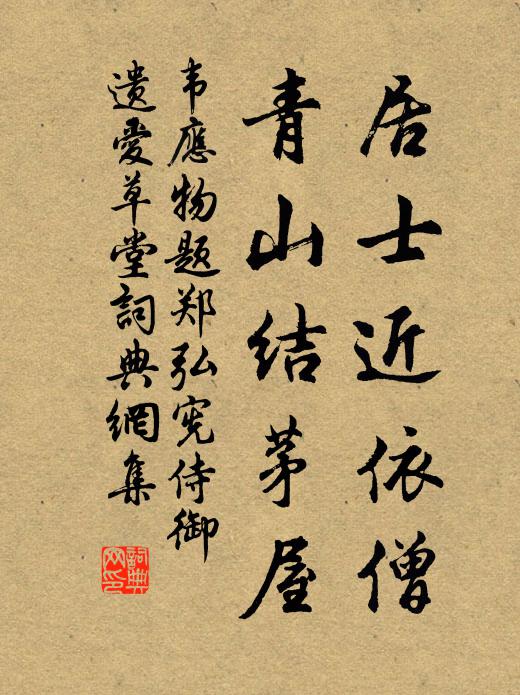 居士近依僧
青山结茅屋
韦應物题郑弘宪侍御
遗爱草堂詞典網集
詞典網印